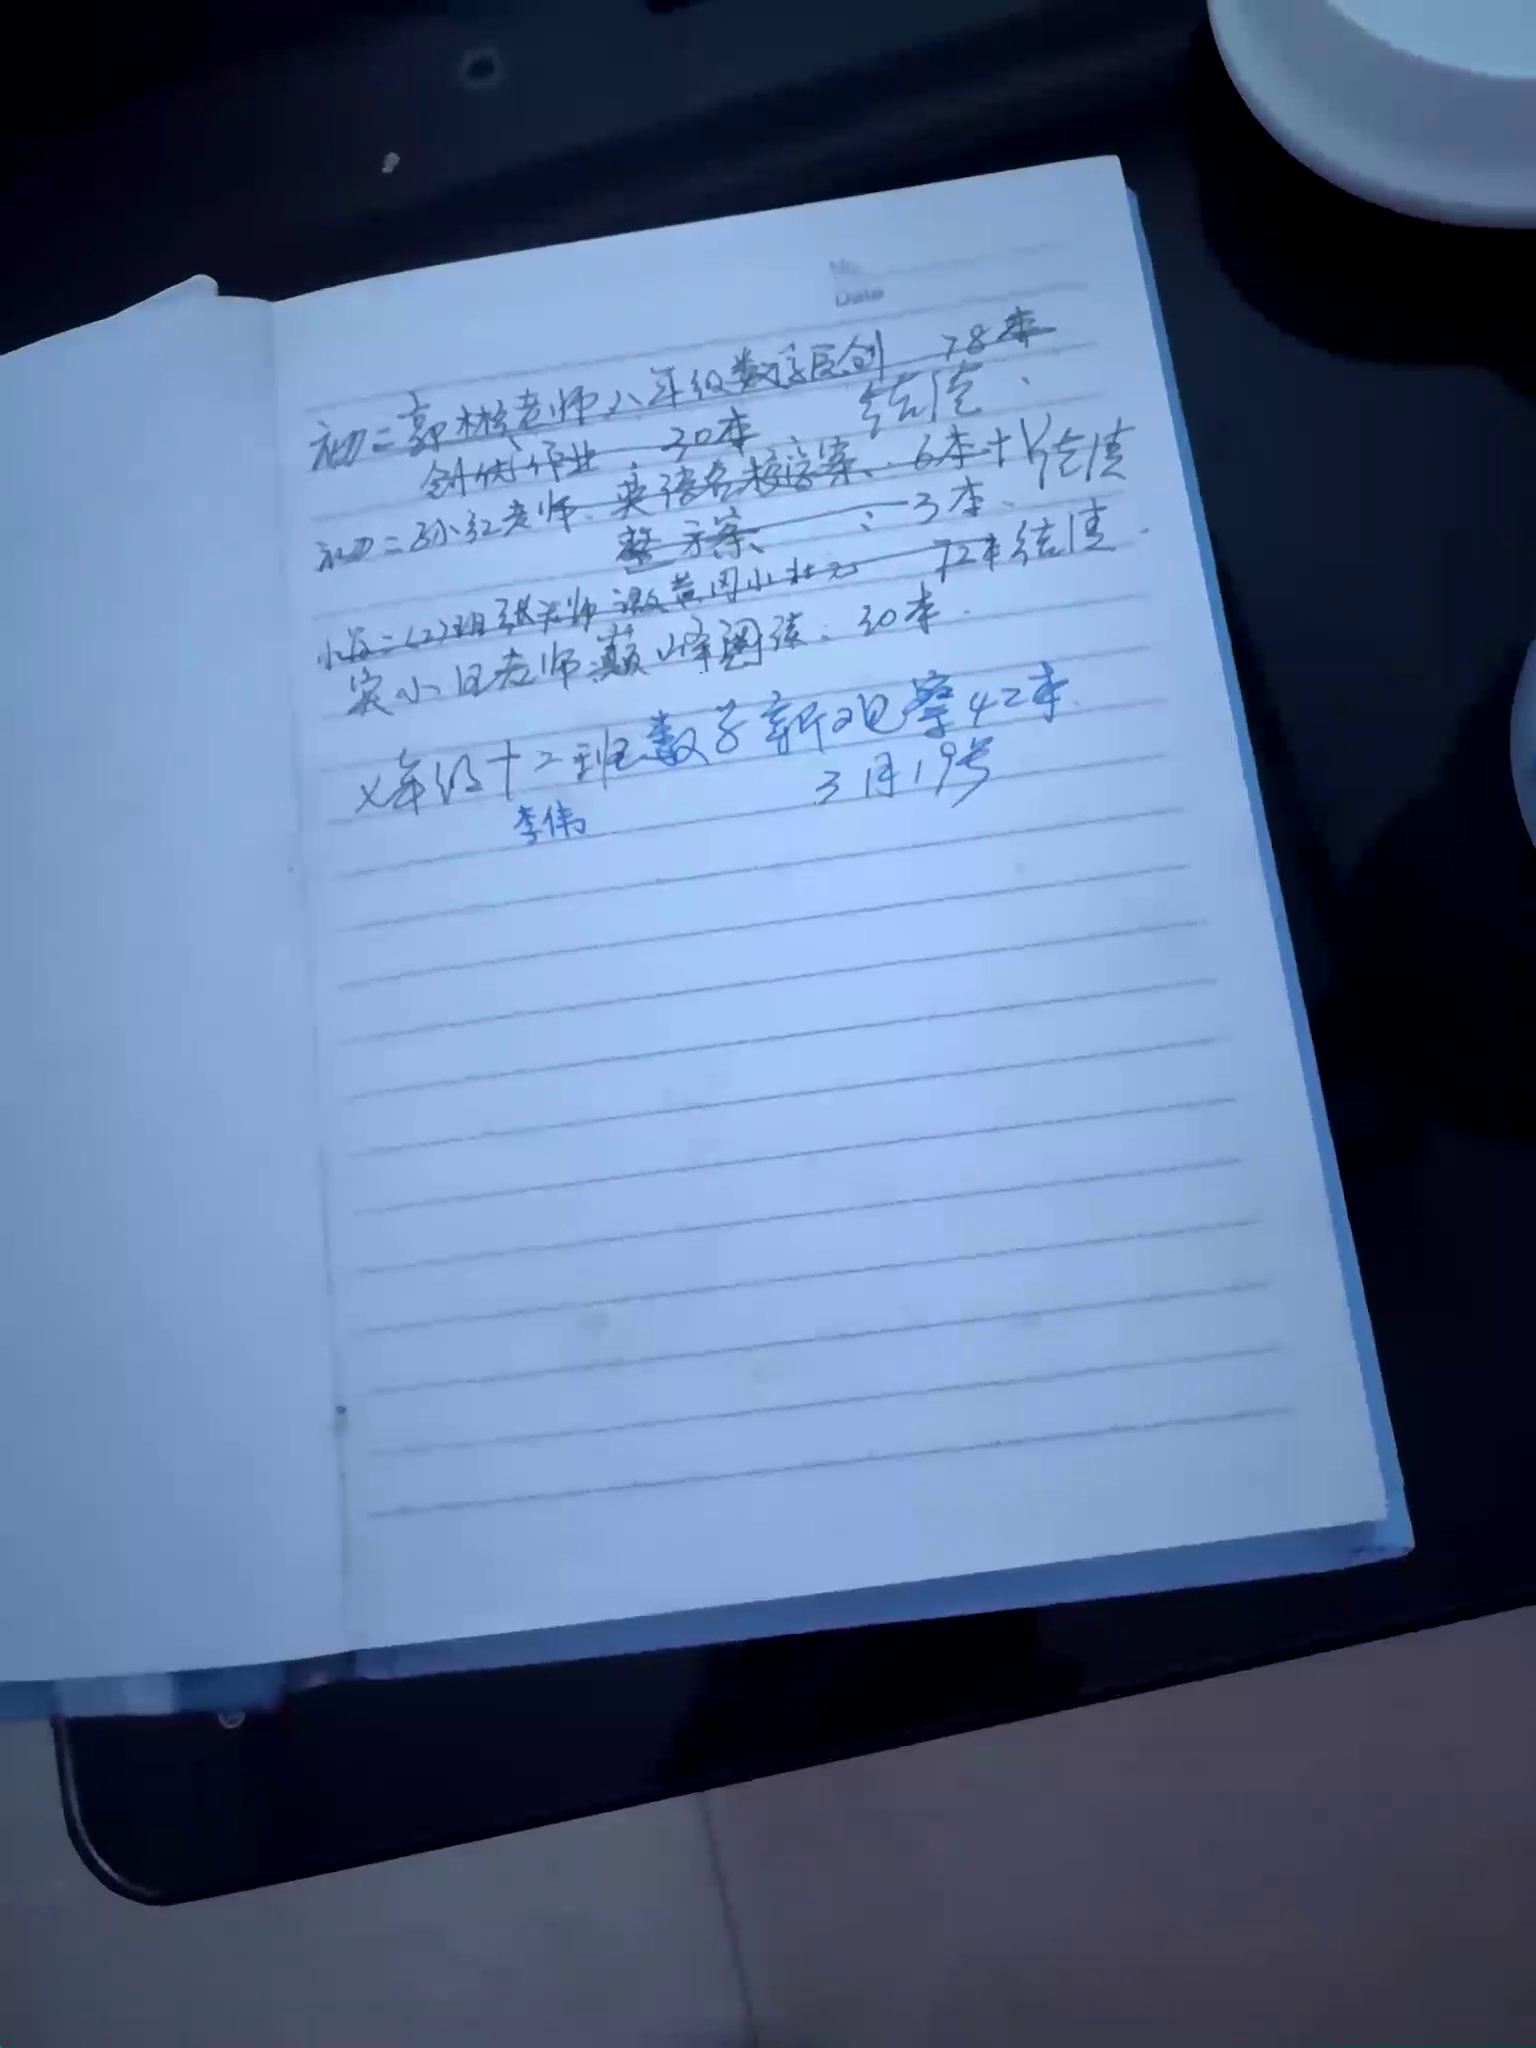 No.
Date
初二郭彬老师八年级数学原创 78本
创优作业 30本 结清.
初二孙红老师、英语名校学案、6本 结清
整 方案、: 3本、
小学二(2)班张老师 黄冈小状元 72本结清.
实小吕老师巅峰阅读. 30本.
七年级十二班数学新观察42本.
李伟 3月19号